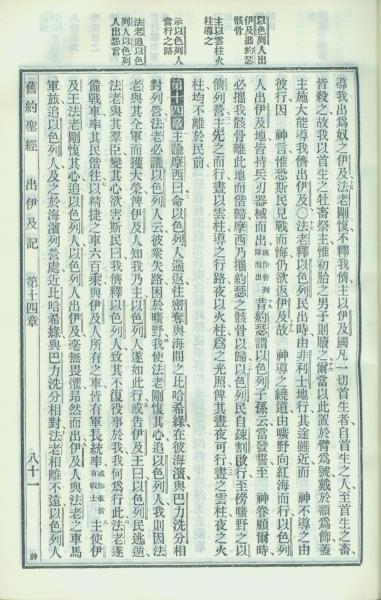 以色列人出
伊及攜約瑟
骸骨
主以雲柱火
柱導之
示以色列人
當行之路
法老追以色
列人以色列
人出怨言
導我出爲奴之伊及法老剛愎不釋我儕主以伊及國凡一切首生者自首生之人至首生之畜
皆殺之故我以首生之牡畜祭主惟初胎之男子則贖之爾當以此置於臂爲號戴於額爲飾蓋
主施大能導我儕出伊及〇法老釋以色列民出時由非利士地行其途雖近而 神不導之由
彼行因 神言惟恐斯民見戰而悔仍欲返伊及故 神導之繞道由曠野向紅海而行以色列
人出伊及地皆持兵刃器械而出或作皆列隊而出昔約瑟謂以色列子孫云當發誓至 神眷顧爾時
必攜我骸骨離此地而偕歸摩西乃攜約瑟之骸骨以歸以色列民自疎割啟行至傍曠野之以
倘列營主先之而行晝以雲柱導之行路夜以火柱爲之光照俾其晝夜可行晝之雲柱夜之火
柱均不離於民前
第十四章主諭摩西曰命以色列人遄返往密奪與海間之比哈希綠在彼海濱與巴力洗分相
對列營法老必議以色列人云彼眾失路困於曠野我使法老剛愎其心追以色列人我則因法
老與其全軍而獲大榮俾伊及人知我乃主以色列人遂如此行或告伊及王曰以色列民逃遁
法老與其羣臣變其心欲害斯民曰我儕釋以色列人致其不復役事於我我何爲行此法老遂
備戰車率其民偕往以精捷之車六百乘與伊及人所有之車皆有軍長統率或作車皆有戰士主使伊
及王法老剛愎其心追以色列人以色列人出伊及毫無畏懼昂然而出伊及人與法老之車馬
軍旅追以色列人及之於海濱列營處近比哈希綠與巴力洗分相對法老相離不遠以色列人
舊約聖經 出伊及記 第十四章 八十一